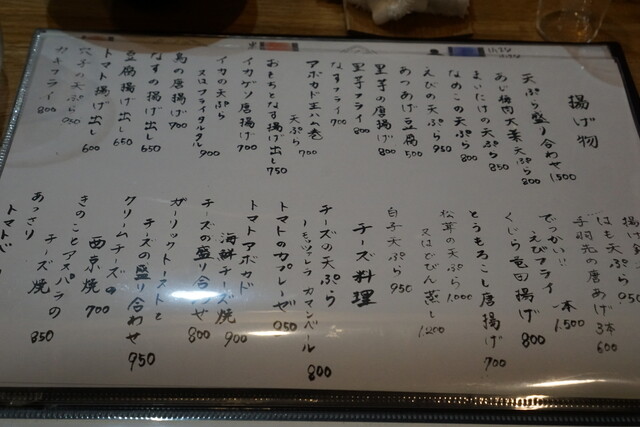 揚げ物
天ぷら盛り合わせ 1,500
あじ梅大葉天ぷら 800
まいたけの天ぷら 850
なめこの天ぷら 800
えびの天ぷら 950
あつあげ豆腐 500
里芋の唐揚げ 800
里芋フライ 800
なすフライ 700
アボカド生ハム巻
天ぷら 700
おもちとなす揚げ出し 750
イカゲソ唐揚げ 700
イカの天ぷら
又はフライタルタル 900
鳥の唐揚げ 700
なすの揚げ出し 650
豆腐揚げ出し 650
トマト揚げ出し 600
穴子の天ぷら 950
カキフライ 800
はも天ぷら 950
手羽先の唐あげ 3本 600
でっかい!!
えびフライ 一本 1,500
くじら竜田揚げ 800
とうもろこし唐揚げ 700
松茸の天ぷら 1,000
又はどびん蒸し 1,200
白子天ぷら 950
チーズ料理
チーズの天ぷら
モッツァレラ カマンベール 800
トマトのカプレーゼ 950
トマトアボカド
海鮮チーズ焼 900
チーズの盛り合わせ 800
ガーリックトーストと
チーズの盛り合わせ 950
クリームチーズの
西京焼 700
きのことアスパラの
チーズ焼 850
あっさり